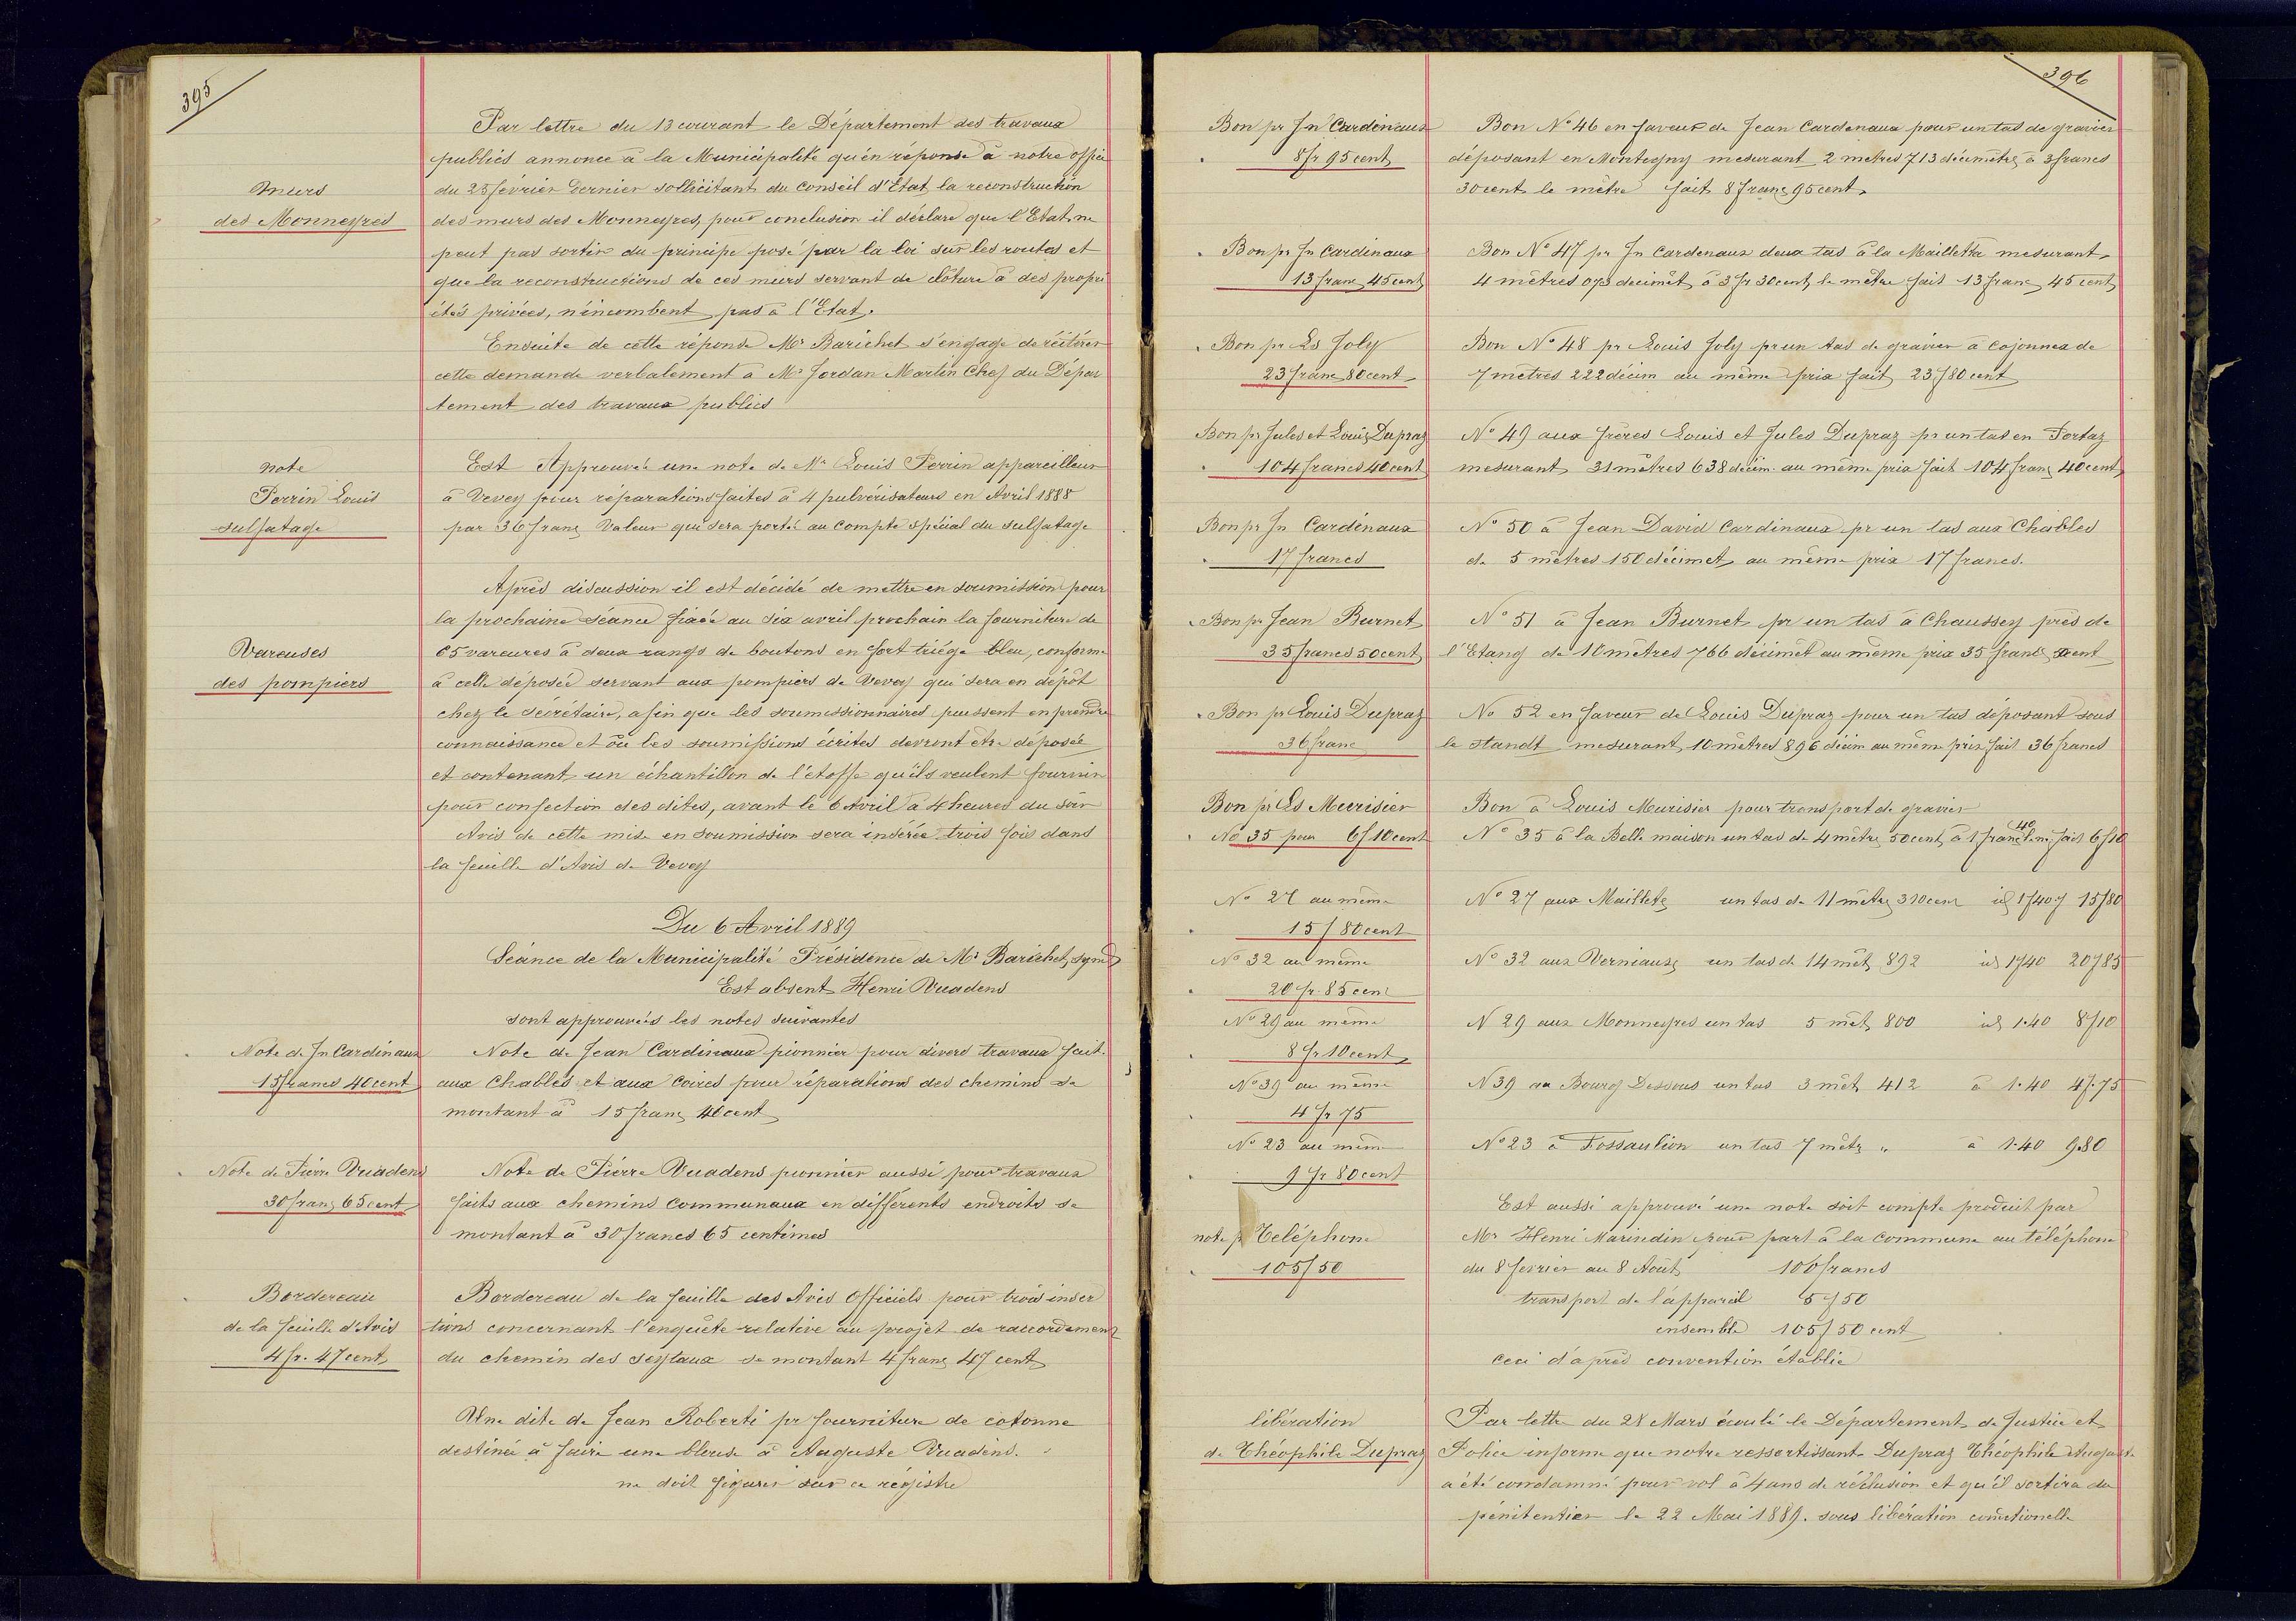 395
Par lettre du 13 courant le Département des travaux
publics annonce à la Municipalité qu'en réponse à notre office
murs
du 25 février dernier sollicitant du Conseil d'Etat la reconstruction
des Monneyres
des murs des Monneyres, pour conclusion il déclare que l'Etat ne
peut pas sortir du principe posé par la loi sur les routes et
que la reconstructions de ces murs servant de clôture à des propri
étés privées, n'incombent pas à l'Etat.
Ensuite de cette réponse Mr Barichet s'engage de réitérer
cette demande verbalement à Mr Jordan Martin Chef du Dépar
tement des travaux publics
note
Est Approuvée une note de Mr Louis Perrin appareilleur
Perrin Louis
à Vevey pour réparations faites à 4 pulvérisateurs en Avril 1888
sulfatage
par 36 francs Valeur qui sera portée au Compte spécial du sulfatage
Après discussion il est décidé de mettre en soumission pour
la prochaine séance fixée au six avril prochain la fourniture de
Vareuses
65 vareures à deux rangs de boutons en fort triège bleu, conforme
des pompiers
à celle déposée servant aux pompiers de Vevey qui sera en dépôt
chez le secrétaire, afin que les soumissionnaires puissent en prendre
connaissance et où les soumissions écrites devront être déposée
et contenant un échantillon de l'étoffe qu'ils veulent fournir
pour confection des dites, avant le 6 Avril à 4 heures du soir
Avis de cette mise en soumission sera insérée trois fois dans
la feuille d'Avis de Vevey
Du 6 Avril 1889
Séance de la Municipalité Présidence de Mr Barichet, synd
Est absent Henri Vuadens
sont approuvées les notes suivantes
Note de Jn Cardinaux
Note de Jean Cardinaux pionnier pour divers travaux fait
15 francs 40 cent
aux Chables et aux Coires pour réparations des chemins se
montant à 15 francs 40 cent
Note de Pierre Vuadens
Note de Pierre Vuadens pionnier aussi pour travaux
30 francs 65 cent
faits aux chemins Communaux en différents endroits se
montant à 30 francs 65 centimes
Bordereau
Bordereau de la feuille des Avis Officiels pour trois inser
de la feuille d'Avis
tions concernant l'enquête relative au projet de raccordement
4 fr. 47 cent
du chemin des Seytaux se montant 4 francs 47 cent
Une dite de Jean Roberti pr fourniture de cotonne
destinée à faire une blouse à Auguste Vuadens.
ne doit figurer sur ce régistre
396
Bon pr Jn Cardinaux
Bon No 46 en faveur de Jean Cardenaux pour un tas de gravier
8 fr 95 cent
déposant en Montegny mesurant 2 metres 713 décimètres à 3 francs
30 cent le mètre fait 8 francs 95 cent
Bon pr Jn Cardinaux
Bon No 47 pr Jn Cardenaux deux tas à la Mailletta mesurant
13 francs 45 cent
4 mètres 073 decimèt à 3 fr 30 cent le mètre fait 13 francs 45 cent
Bon pr Ls Joly
Bon No 48 pr Louis Joly pr un tas de gravier à Cojonnex de
23 francs 80 cent
7 mètres 222 décim au même prix fait 23 f 80 cent
Bon pr Jules et Louis Dupraz
No 49 aux frères Louis et Jules Dupraz pr un tas en Portaz
104 francs 40 cent
mesurant 31 mètres 638 décim au même prix fait 104 francs 40 cent
Bon pr Jn Cardinaux
No 50 à Jean David Cardinaux pr un tas aux Chables
17 francs
de 5 mètres 150 décimet au même prix 17 francs.
Bon pr Jean Burnet
No 51 à Jean Burnet pr un tas à Chaussey près de
35 francs 50 cent
l'Etang de 10 mètres 766 décimèt au même prix 35 francs 50 cent
Bon pr Louis Dupraz
No 52 en faveur de Louis Dupraz pour un tas déposant sous
36 franc
le standt mesurant 10 mètres 896 décim au même prix fait 36 francs
Bon pr Ls Murisier
Bon à Louis Murisier pour transport de gravier
No 35 pour 6 f 10 cent
No 35 à la Belle maison un tas de 4 mètres 50 cent à 1 franc 40 le m. fait 6 f 10
No 27 au même
No 27 aux Maillets un tas de 11 mètres 310 cent id 1 f 40 15 f 80
15 f 80 cent
No 32 au même
No 32 aux Verniaux un tas de 14 mèt 892 id 1 f 40 20 f 85
20 fr. 85 cent
No 29 au même
N 29 aux Monneyres un tas 5 mèt 800 id 1.40 8 f 10
8 fr 10 cent
No 39 au même
N 39 au Bourg Dessous un tas 3 mèt 412 à 1.40 4 f. 75
4 fr 75
No 23 au mem
No 23 à Fossaulion un tas 7 mètr " à 1.40 9.80
9 fr 80 cent
Est aussi approuvé une note soit compte produit par
note p Teléphone
Mr Henri Marindin pour part à la Commune au téléphone
105 f 50
du 8 fevrier au 8 Août 100 francs
transport de l'appareil 5 f 50
ensemble 105 f 50 cent
Ceci d'après convention établie
libération
Par lettre du 28 Mars écoulé le Département de Justice et
de Théophile Dupraz
Police informe que notre ressortissant Dupraz Théophile Auguste
a été condamné pour vol à 4 ans de réclusion et qu'il sortira du
pénitentier le 22 Mai 1889. sous libération conditionelle